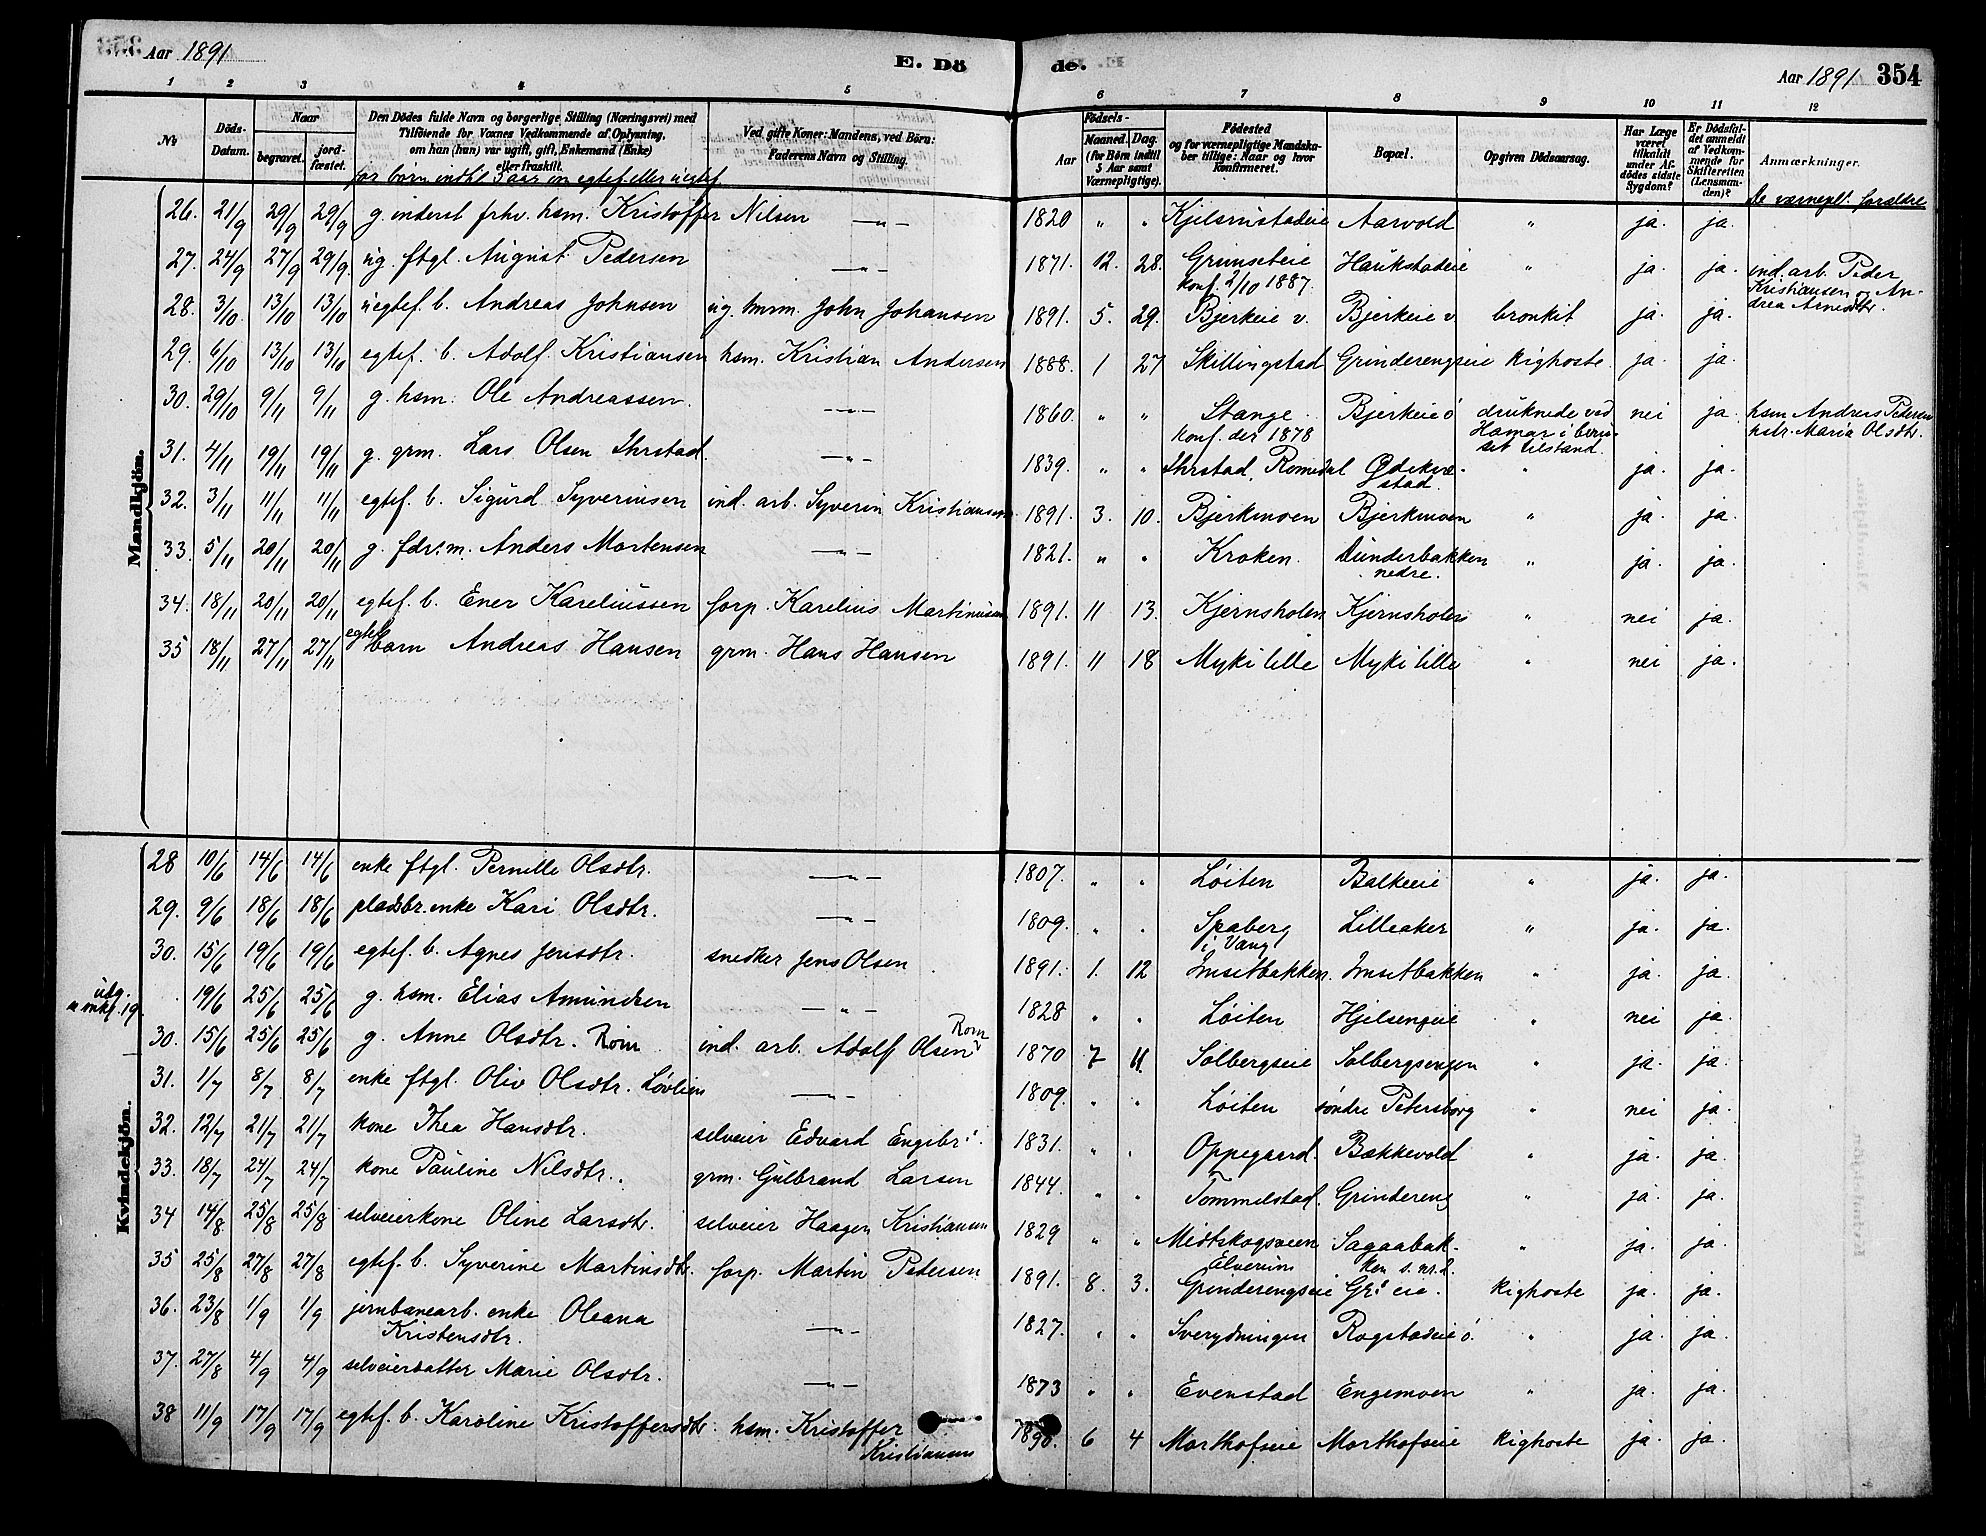 Aar 1891
E. Dö
de.
Aar 1891
354
1 2 3 4 5 6 7 8 9 10 11 12
No
Döds-Datum.
Naar
begravet.
jord-fæstet.
Den Dödes fulde Navn og borgerlige Stilling (Næringsvei) med
Tilföiende for Voxnes Vedkommende af Oplysning,
om han (hun) var ugift, gift, Enkemand (Enke)
eller fraskilt.
for børn indtil 5 aar om egtef. eller uegtef.
Ved gifte Koner: Mandens, ved Börn:
Faderens Navn og Stilling.
Födsels-
Aar
Maaned. Dag.
(for Börn indtil
5 Aar samt
Værnepligtige).
Födested
og for værnepligtige Mandska-
ber tillige: Naar og hvor
Konfirmeret.
Bopæl.
Opgiven Dödsaarsag.
Har Læge
været
tilkaldt
under Af-
dödes sidste
Sygdom?
Er Dödsfal-
det anmeldt
af Vedkom-
mende for
Skifteretten
(Lensman-
den)?
Anmærkninger.
De værnepl. forældre
Mandkjön.
26. 21/9 29/9 29/9 g. inderst frhv. hsm. Kristoffer Nilsen —"— 1820 " " Kjelsrustadeie Aarvold " ja. ja.
27. 24/9 27/9 29/9. ug. ftgl. August Pedersen —"— 1871. 12. 28. Grimseteie Haukstadeie " ja ja. ind. arb. Peder
konf. 2/10 1887. Kristiansen og An-
drea Arnesdtr.
28. 3/10 13/10 13/10 uegtef. b. Andreas Johnsen ug. tmm. John Johansen 1891. 5. 29. Bjerkeie v. Bjerkeie v bronkit ja. ja.
29. 6/10 13/10 13/10 egtef. b. Adolf Kristiansen hsm. Kristian Andersen 1888. 1 27 Skillingstad Grinderengseie kighoste. ja. ja.
30. 29/10 9/11 9/11 g. hsm. Ole Andreassen. —"— 1860. " " Stange. Bjerkeie ö druknede ved nei ja. hsm Andreas Pedersen
konf. der 1878 Hamar i beru- hstr. Maria Olsdtr.
set tilstand.
31. 4/11 19/11 19/11 g. grm. Lars Olsen Ihrstad. —"— 1839. " " Ihrstad, Romedal Ødekvæ- " ja. ja.
stad.
32. 3/11 11/11 11/11 egtef. b. Sigurd Syverinsen ind. arb. Syverin Kristiansen 1891. 3. 10. Bjerkmoen Bjerkmoen " ja. ja.
33. 5/11 20/11 20/11 g. fdr.m. Anders Mortensen —"— 1821. " " Kroken. Dunderbakken " ja. ja.
nedre.
34. 18/11 20/11 20/11 egtef. b. Ener Kareliussen forp. Karelius Martinusen 1891. 11 13. Kjernsholen Kjernsholen " nei ja.
35 18/11 27/11 27/11 egtef. barn Andreas Hansen grm. Hans Hansen 1891. 11 18 Myki lille Myki lille " nei ja.
Kvindekjön.
28 10/6 14/6 14/6 enke ftgl. Pernille Olsdtr. —"— 1807. " " Løiten Balkeeie " ja. ja.
29. 9/6 18/6 18/6 pladsbr. enke Kari Olsdtr. —"— 1809. " " Spaberg Lilleaker " ja. ja.
i Vang
30. 15/6 19/6 19/6 egtef. b. Agnes Jensdtr. snedker Jens Olsen 1891. 1. 12 Imsetbakken. Imsetbakken " ja. ja.
19/6 25/6 25/6 g. hsm. Elias Amundsen —"— 1828 " " Løiten Hjelsengeie " nei ja.
30. 15/6 25/6 25/6 g. Anne Olsdtr. Rom ind. arb. Adolf Olsen Rom 1870 7 11. Solbergseie Solbergsengen " ja. ja.
31. 1/7 8/7 8/7 enke ftgl. Oliv Olsdtr. Løvlien —"— 1809. " " Løiten søndre Petersborg " nei ja.
32. 12/7 21/7 21/7 kone Thea Hansdtr. selveier Edvard Engebr. 1831. " " Oppegaard. Bækkevold " ja. ja.
33. 18/7 24/7 24/7 kone Pauline Nilsdtr. grm. Gulbrand Larsen 1844. " " Tommelstad. Grindereng " ja. ja.
34 14/8 25/8 25/8 selveierkone Oline Larsdtr. selveier Haagen Kristiansen 1829 " " Midtskogsveen Sagaabak- " ja. ja.
Elverum ken s. nr. 2.
35 25/8 27/8 27/8 egtef. b. Syverine Martinsdtr. forp. Martin Pedersen 1891. 8. 3. Grinderengseie Gr. eie. kighoste ja. ja.
36. 23/8 1/9 1/9 jernbanearb. enke Oleana —"— 1827. " " Sverydningen Rogstadeie ö. " ja ja.
Kristensdtr.
37. 27/8 4/9 4/9 selveierdatter Marie Olsdtr. —"— 1873 " " Evenstad Engemoen " ja. ja.
38 11/9 17/9 17/9 egtef. b. Karoline Kristoffersdtr. hsm. Kristoffer 1890. 6 4 Morthofseie Morthofseie kighoste ja. ja.
Kristiansen